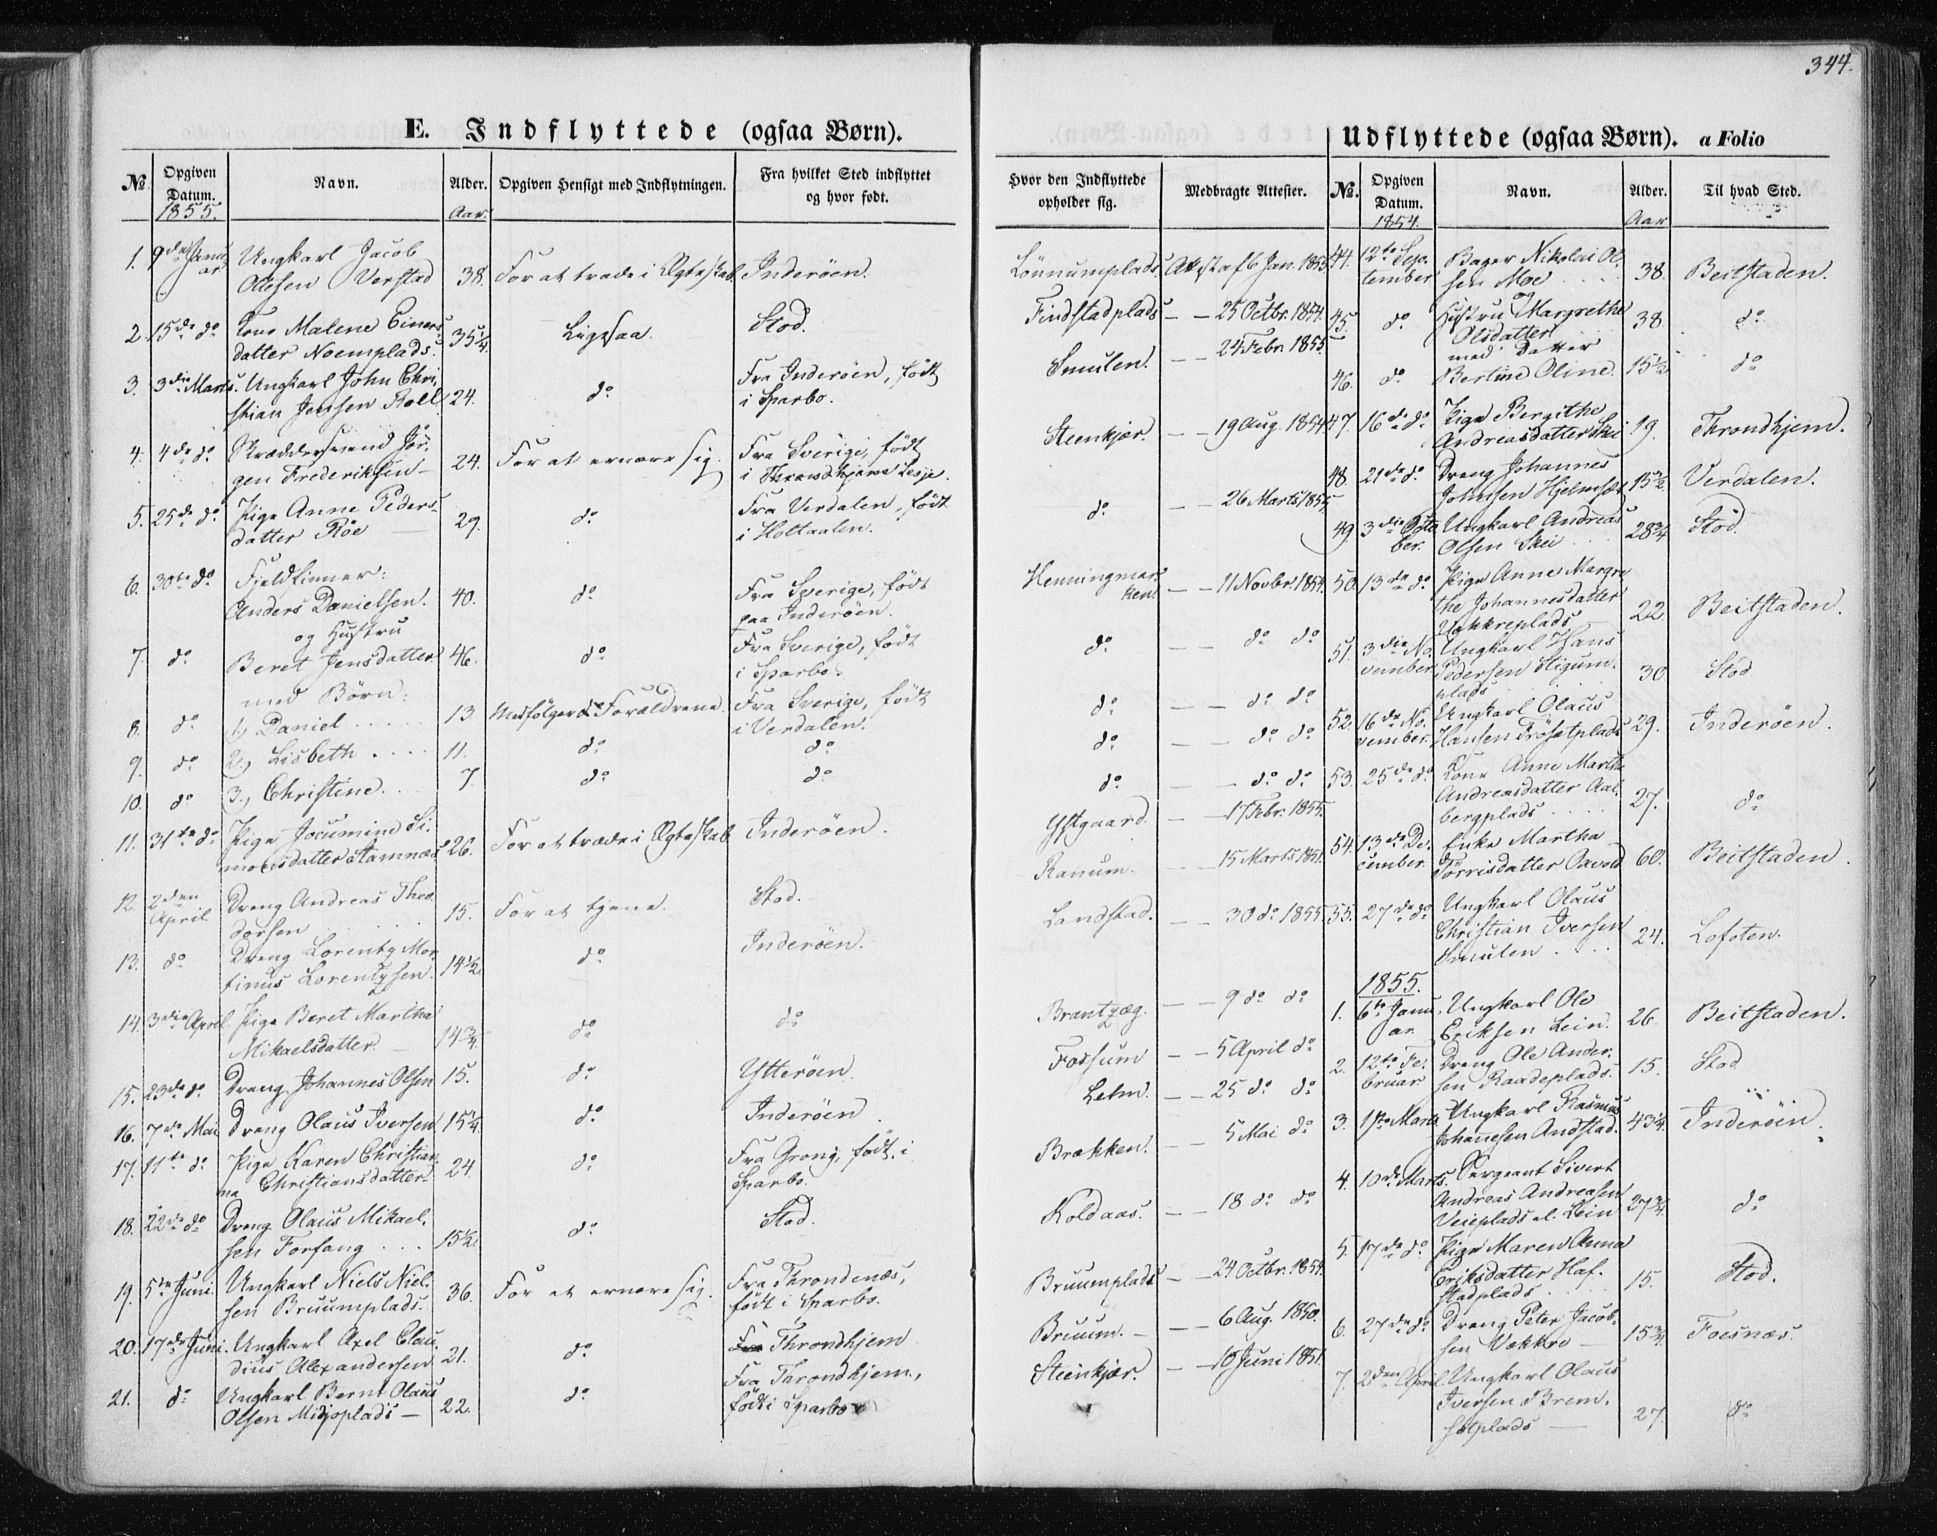 344.
E. Indflyttede (ogsaa Børn).
Udflyttede (ogsaa Børn). a Folio
No. Opgiven Datum. Navn. Alder. Opgiven Hensigt med Indflytningen. Fra hvilket Sted indflyttet og hvor født.
Hvor den Indflyttede opholder sig. Medbragte Attester. No. Opgiven Datum. Navn. Alder. Til hvad Sted.
1855. Aar.
1. 9de Janu- Ungkarl Jacob
ar Olesen Verstad 38. For at træde i Ægteskab. Inderöen. Lönnumplads Attest af 6 Jan. 1855
2. 15de do Kone Malene Einers-
datter Noemplads. 35 1/4. Ligesaa. Stod. Findstadplads — — 25 Octbr. 1854.
3. 3die Marts. Ungkarl John Chri-
stian Jenssen Roll 24. do Fra Inderöen, født
i Sparbo. Smulen. — — 24 Febr. 1855.
4. 4de do Skræddersvend Jör-
gen Frederiksen — 24. For at ernære sig. Fra Sverige, født
i Throndhjem Lesje. Steenkjær. — — 19 Aug. 1854
5. 25de do Pige Anne Peders-
datter Röe — 29. do Fra Verdalen, født
i Holtaalen. do — — 26 Marts 1855
6. 30te do Fjeldfinner:
Anders Danielsen. 40. do Fra Sverige, født
paa Inderöen. Henningmar-
ken. — — 11 Novbr. 1854.
og Hustru
7. do Beret Jensdatter 46. do Fra Sverige, født
i Sparbo. do — — do do
med Börn:
8. do 1, Daniel . . . . . 13. Medfölger Forældrene. Fra Sverige, født
i Verdalen. do — — do do
9. do 2, Lisbeth . . . . 11. do do do — — do do
10. do 3., Christine. . . 7. do do do — — do do
11. 31te do Pige Jocumine Si-
monsdatter Stamnæs 26. For at træde i Ægteskab. Inderöen. Ystgaard. — — 17 Febr. 1855.
12. 2den April. Dreng Andreas Theo-
dorsen 15. For at tjene. Stod. Ranum. — — 15 Marts 1851.
13. do Dreng Lorentz Mor-
tinus Lorentzsen. 14 1/2. do Inderöen. Landstad. — — 30 do 1855.
14. 3die April. Pige Beret Martha
Mikaelsdatter. — 14 3/4. do do Brantzæg. — — 9 do do
15. 23de do Dreng Johannes Olsen 15. do Ytteröen. Fossum — — 5 April do
16. 7de Mai Dreng Olaus Iversen 15 1/4. do Inderöen. Lelm. — — 25 do do
17. 11te do Pige Karen Christian-
na Christiansdatter. 24. do Fra Grong, født i
Sparbo. Brækken. — — 5 Mai do
18. 22de do Dreng Olaus Mikael-
sen Forfang . . . 15 1/2. do Stod. Koldaas. — — 18 do do
19. 5te Juni. Ungkarl Niels Niel-
sen Bruumplads. 36. For at ernære sig. Fra Throndenæs,
født i Sparbo. Bruumplads — — 24 Octbr. 1854.
20. 17de Juni. Ungkarl Axel Clau-
dius Alexandersen 21. do Fra Throndhjem Bruum. — — — 6 Aug. 1850.
21. do Ungkarl Bernt Olaus
Olsen Midjoplads — 22. do Fra Throndhjem,
født i Sparbo Steinkjær. — — 10 Juni 1851.
1854. Aar
44. 12te Sep-
tember Bager Nikolai Ol-
sen Moe . . . . 38. Beitstaden.
og
45. do Hustru Margrethe
Olsdatter 38. do
med Datter
46. do Bertine Oline. 15 1/2 do
47. 16de do Pige Bergithe
Andreasdatter Skei 19. Throndhjem.
48. 21de do Dreng Johannes
Johnsen Hjelmsæt 15 1/2. Verdalen.
49. 3die Octo-
ber. Ungkarl Andreas
Olsen Skei . . . . 28 3/4 Stod.
50. 13de do Pige Anne Margre-
the Johannesdatter
Vekkreplads — 22. Beitstaden.
51. 3die No-
vember. Ungkarl Hans
Pedersen Stigum-
plads 30. Stod.
52. 16de No-
vember. Ungkarl Olaus
Hansen Frösetplads 29. Inderöen.
53. 25de do Kone Anne Martha
Andreasdatter Aal-
bergplads . . . . 27. do
54. 13de De-
cember. Enke Martha
Torrisdatter Aavold 60. Beitstaden.
55. 27de do Ungkarl Olaus
Christian Iversen
Smulen . . . . 24. Lofoten.
1855.
1. 6te Janu-
ar Ungkarl Ole
Eriksen Lein. 26. Beitstaden.
2. 12te Fe-
bruar Dreng Ole Ander-
sen Raadeplads. 15. Stod
3. 1ste Marts Ungkarl Rasmus
Johannesen Andstad. 43 1/4. Inderöen.
4. 10de Marts. Sergeant Sivert
Andreas Andreasen
Veieplads al. Lein 27 3/4. do
5. 17de do Pige Maren Anna
Eriksdatter Haf-
stadplads . . . . 15. Stod.
6. 27de do Dreng Peter Jacob-
sen Vekkre — 15 3/4. Foesnæs.
7. 2den April. Ungkarl Olaus
Iversen Brem-
setplads — 27. do